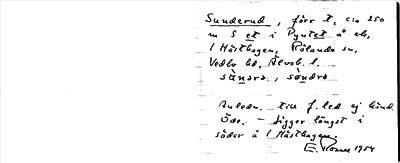 Sunderud, förr t, ca 250
m S et i Pyntet å eb,
1 Hästhagen, Rölanda sn,
Vedbo hd, Älvsb. l.
Anledn. till f. led ej känd.
Öde. - Ligger längst i
söder å 1 Hästhagen.
E. Rosell 1954